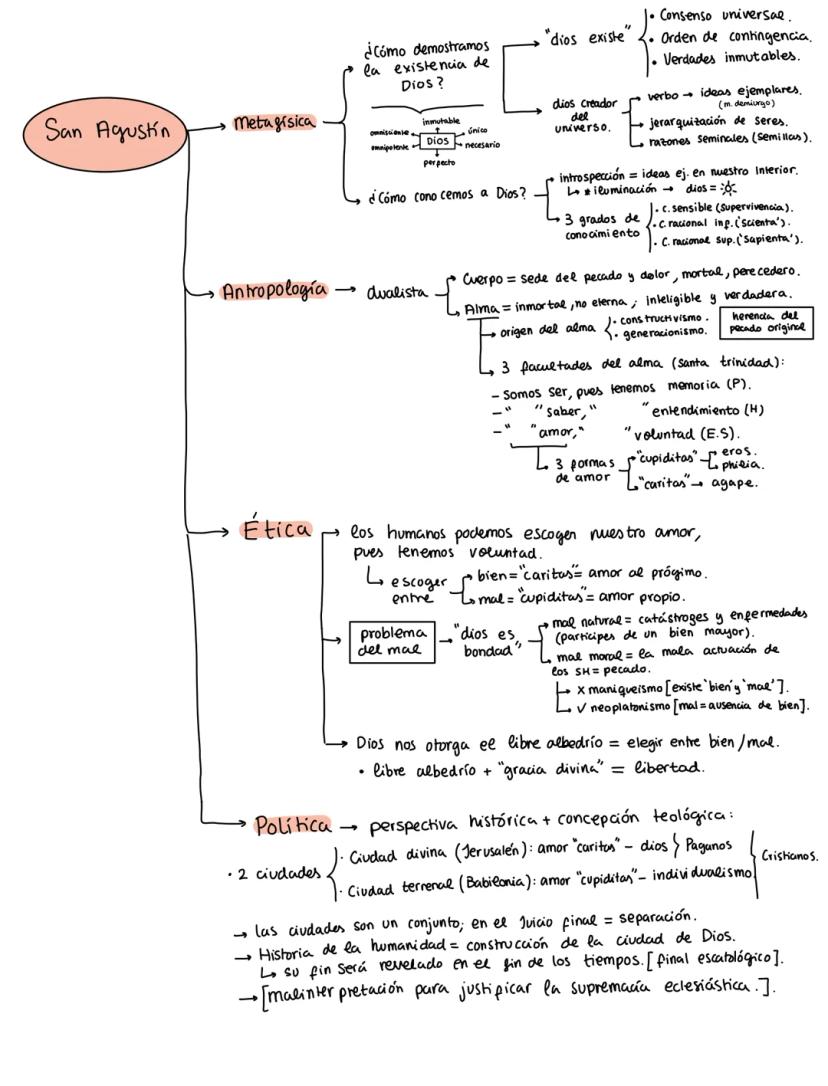 San Agustín
Metafísica
¿Cómo demostramos
la existencia de
Dios?
"dios existe"
• Consenso universal.
• Orden de contingencia.
• Verdades inmutables.
dios creador
del
universo.
verbo → ideas ejemplares.
(m. demiurgo)
jerarquización de seres.
razones seminales (semillas).
inmutable
omnisciente
único
DIOS
omnipotente
necesario
perfecto
¿Cómo conocemos a Dios?
introspección = ideas ej. en nuestro interior.
↳ * iluminación → dios =
3 grados de
conocimiento
• c. sensible (supervivencia).
• c. racional inf. ('scienta').
• C. racional sup. ('sapienta').
Antropología → dualista
Cuerpo = sede del pecado y dolor, mortal, perecedero.
Alma = inmortal, no eterna; inteligible y verdadera.
origen del alma
• constructivismo.
• generacionismo.
herencia del
pecado original
3 facultades del alma (Santa trinidad):
- Somos ser, pues tenemos memoria (P).
- " " saber, " " entendimiento (H)
- " " amor, " " voluntad (E.S).
3 formas
de amor
"cupiditas"
eros.
philia.
"caritas" → agape.
Ética
los humanos podemos escoger nuestro amor,
pues tenemos voluntad.
↳ escoger
entre
bien = "caritas" = amor al prógimo.
mal = "cupiditas" = amor propio.
problema
del mal
"dios es
bondad"
mal natural = catástrofes y enfermedades
(partícipes de un bien mayor).
mal moral = la mala actuación de
los SH = pecado.
x maniqueísmo [existe 'bien' y 'mal'].
✓ neoplatonismo [mal = ausencia de bien].
Dios nos otorga el libre albedrío = elegir entre bien/mal.
• libre albedrío + "gracia divina" = libertad.
Política → perspectiva histórica + concepción teológica:
• 2 ciudades
• Ciudad divina (Jerusalén): amor "caritas" - dios } Paganos
• Ciudad terrenal (Babilonia): amor "cupiditas" - individualismo
Cristianos.
→ las ciudades son un conjunto; en el Juicio final = separación.
→ Historia de la humanidad = construcción de la ciudad de Dios.
↳ su fin será revelado en el fin de los tiempos. [final escatológico].
→ [malinterpretación para justificar la supremacía eclesiástica.].